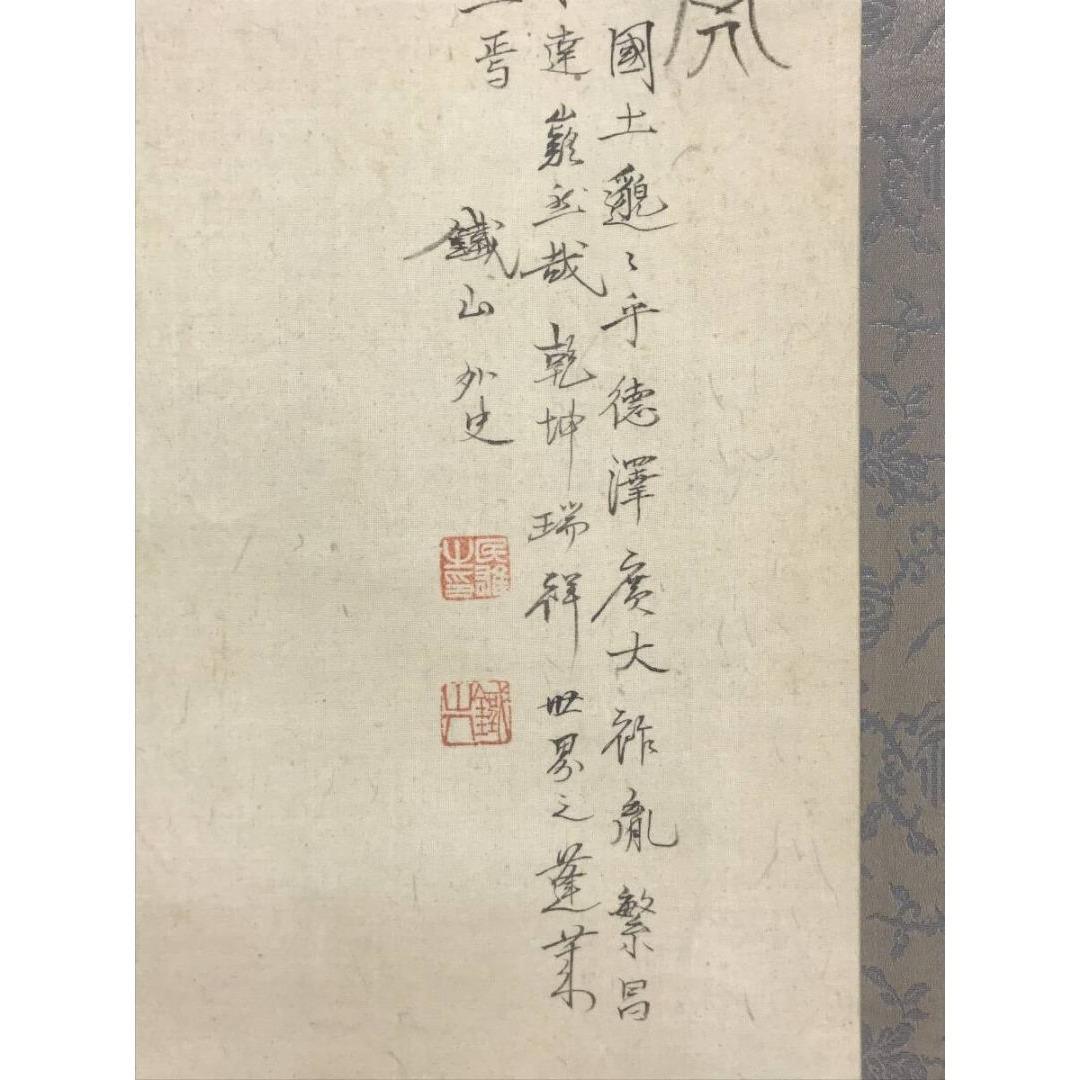 國土邈〻乎德澤廣大祚胤繁昌
達嶷然哉乾坤瑞祥世界之蓬萊
焉
鐵山外史
鐵山